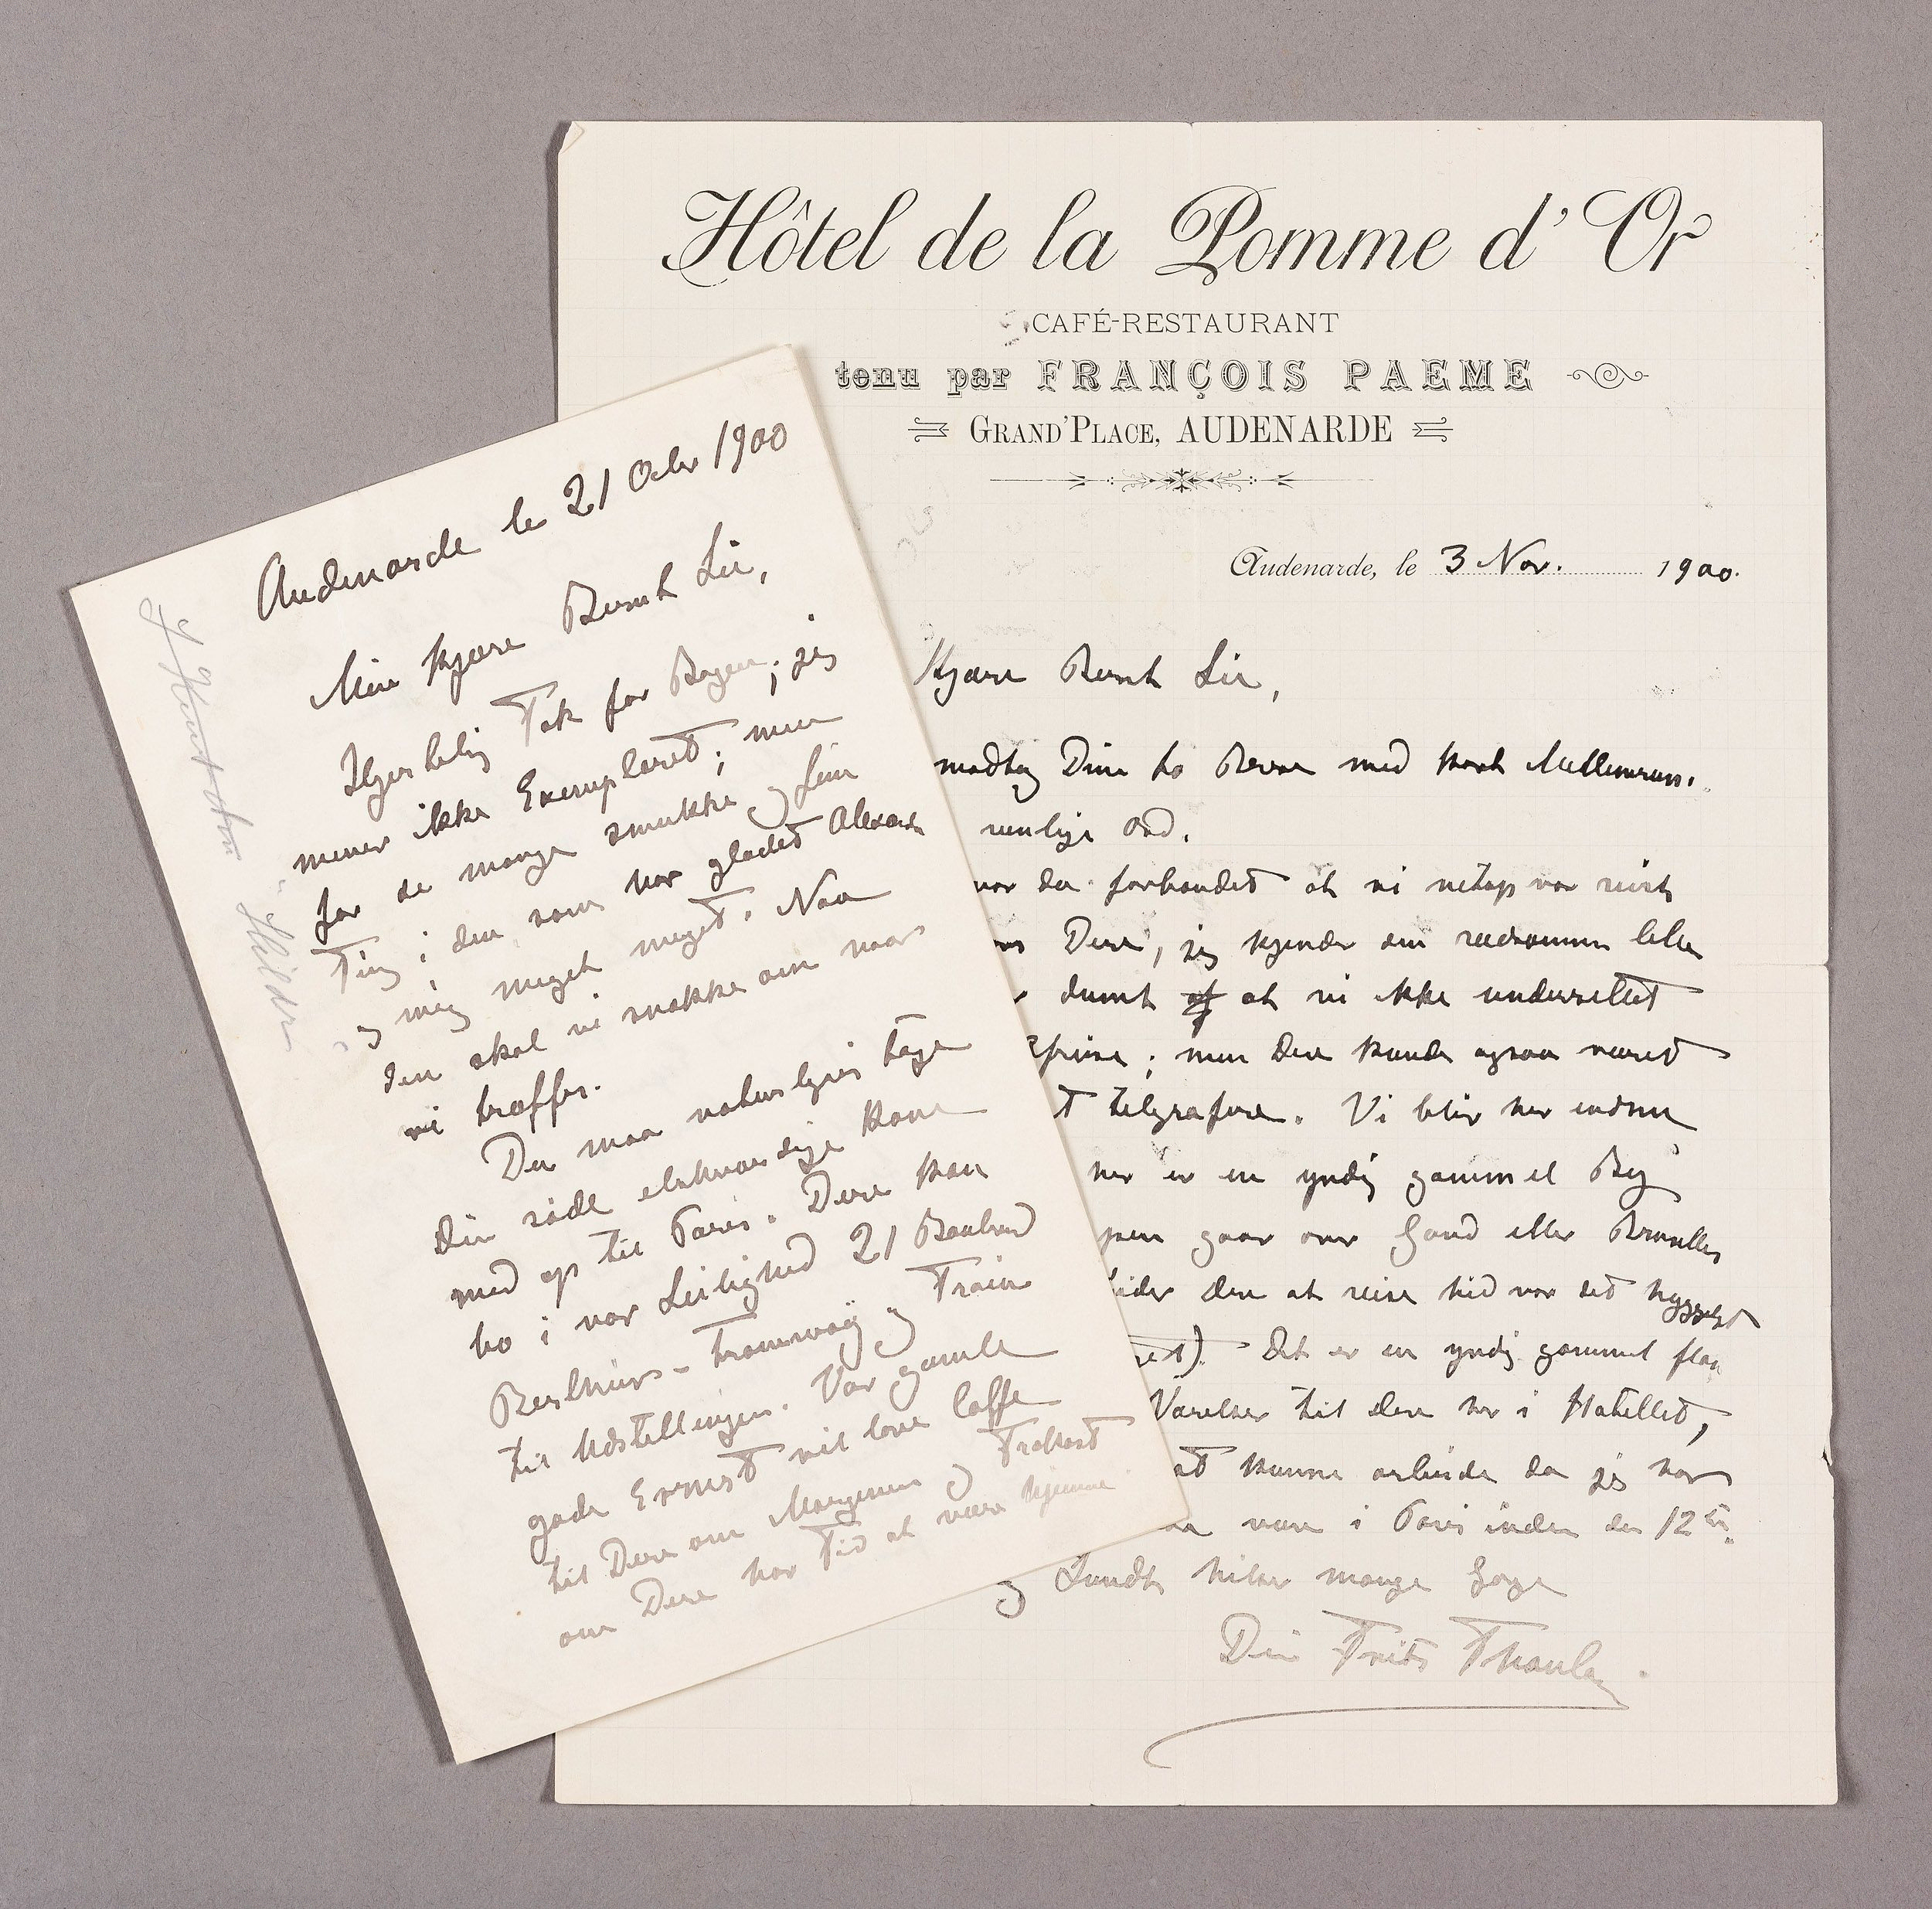 Audenarde le 21 Octbr 1900
Min kjære Bernt Lie,
Hjertelig Tak for Bogen; jeg
mener ikke Exemplaret; men
for de mange smukke og fine
Ting i den som har glædet Alexandra
og mig meget meget. Naa
den skal vi snakke om naar
vi træffes.
Du maa naturligvis tage
din søde elskværdige Kone
med op til Paris. Dere kan
bo i vor Leilighed 21 Boulevard
Berthier – tramway og Train
til Udstillingen. Vor gamle
gode Ernest vil lave Caffe
til Dere om Morgenen og Frokost
om Dere har Tid at være hjemme
Hôtel de la Pomme d'Or
CAFÉ-RESTAURANT
tenu par FRANÇOIS PAEME
GRAND'PLACE, AUDENARDE
Audenarde, le 3 Nov. 1900.
Kjære Bernt Lie,
modtog Dine to Breve med kort Mellemrum.
venlige Ord.
var da forbandet at vi netop var reist
Dere, jeg kjender en rædsom lille
dumt at vi ikke underrettet
; men Dere kunde ogsaa været
telegrafere. Vi blir her endnu
her er en yndig gammel By
gaar over Gand eller Bruxelles
Dere at reise hid var det hyggeligt
Det er en yndig gammel
Værelser til Dere her i Hotellet,
at kunne arbeide da jeg har
være i Paris inden den 12te.
og Lundh hilser mange Gange
Din Frits Thaulow.